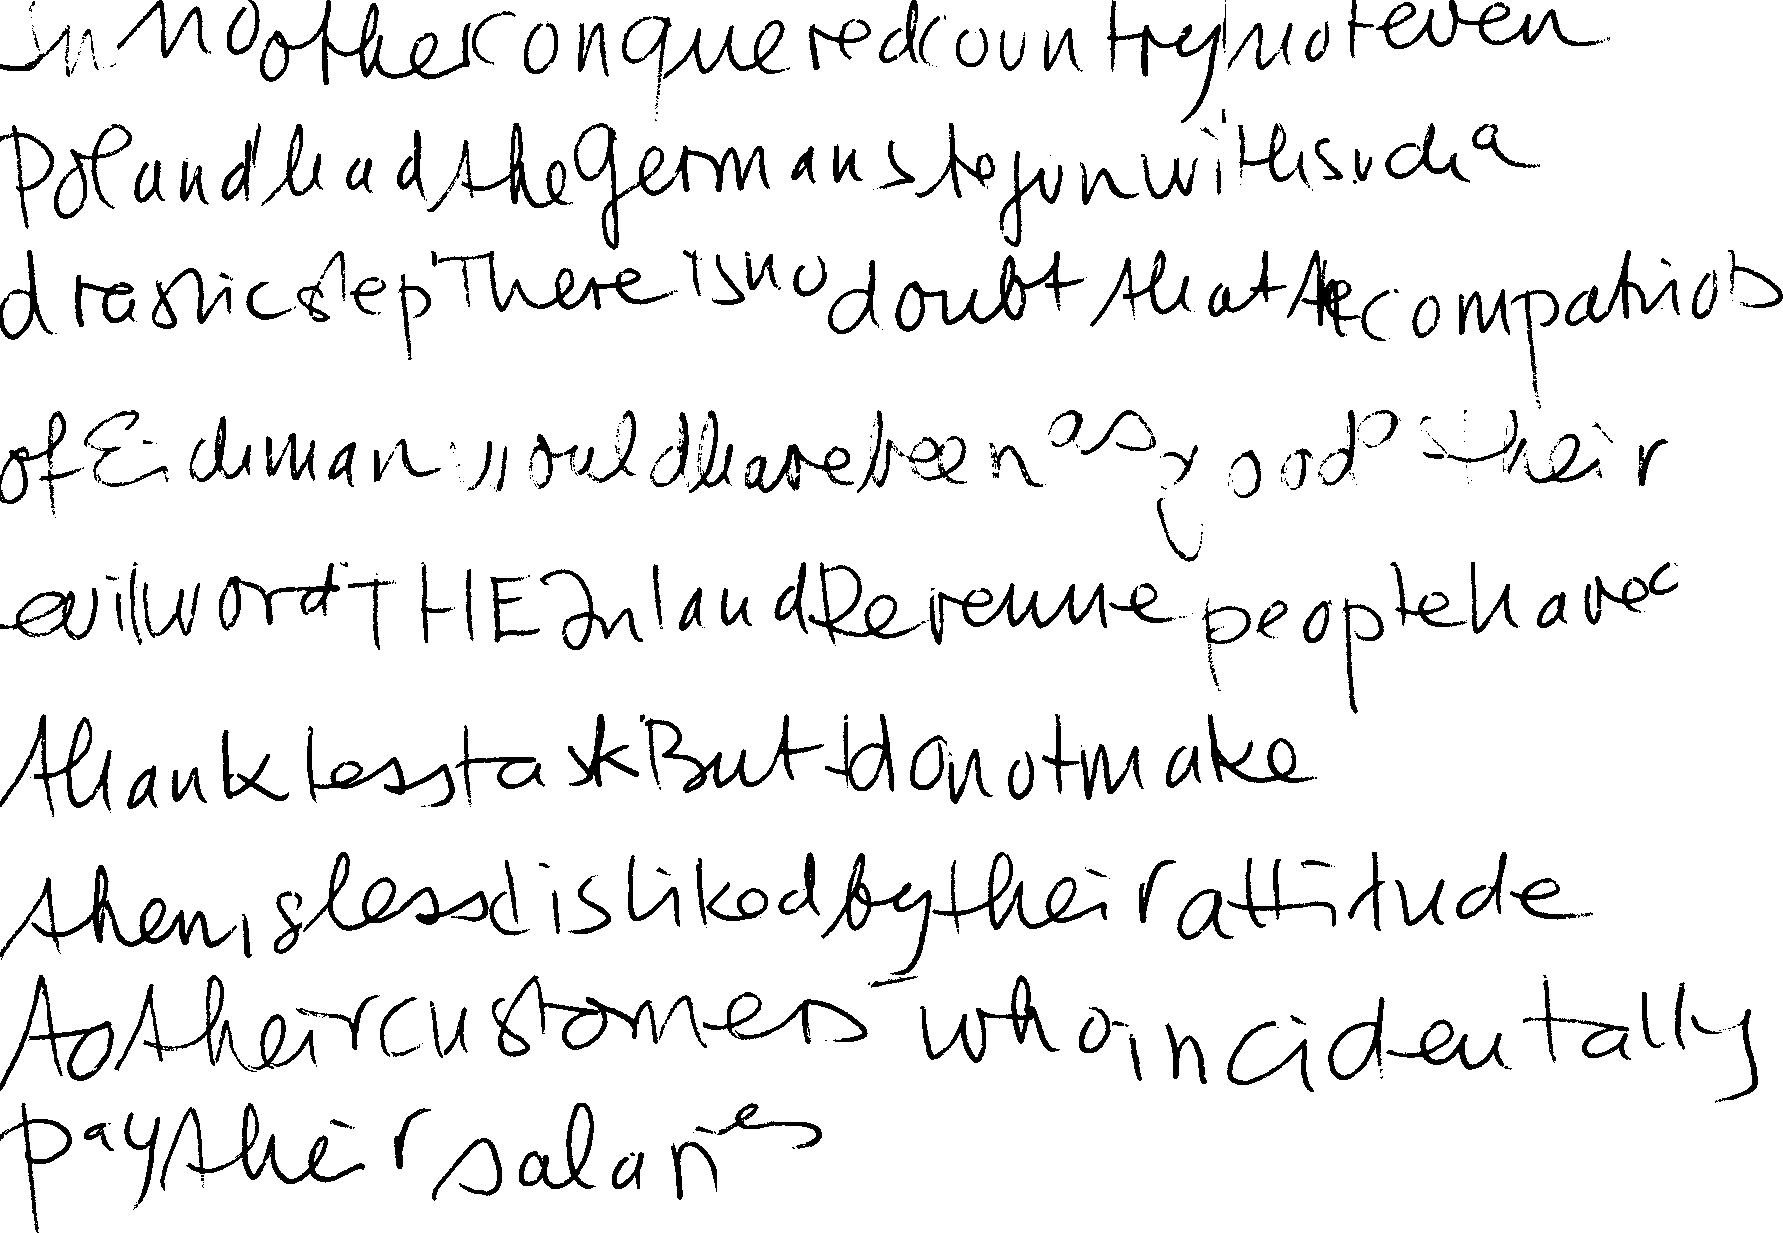 In no other conquered country not even
Poland had the Germans begun with such a
drastic step There is no doubt that the compatriots
of Eichman would have been as good as their
evil word THE Inland Revenue people have a
thankless task But do not make
themis less disliked by their attitude
to their customers who incidentally
pay their salaries